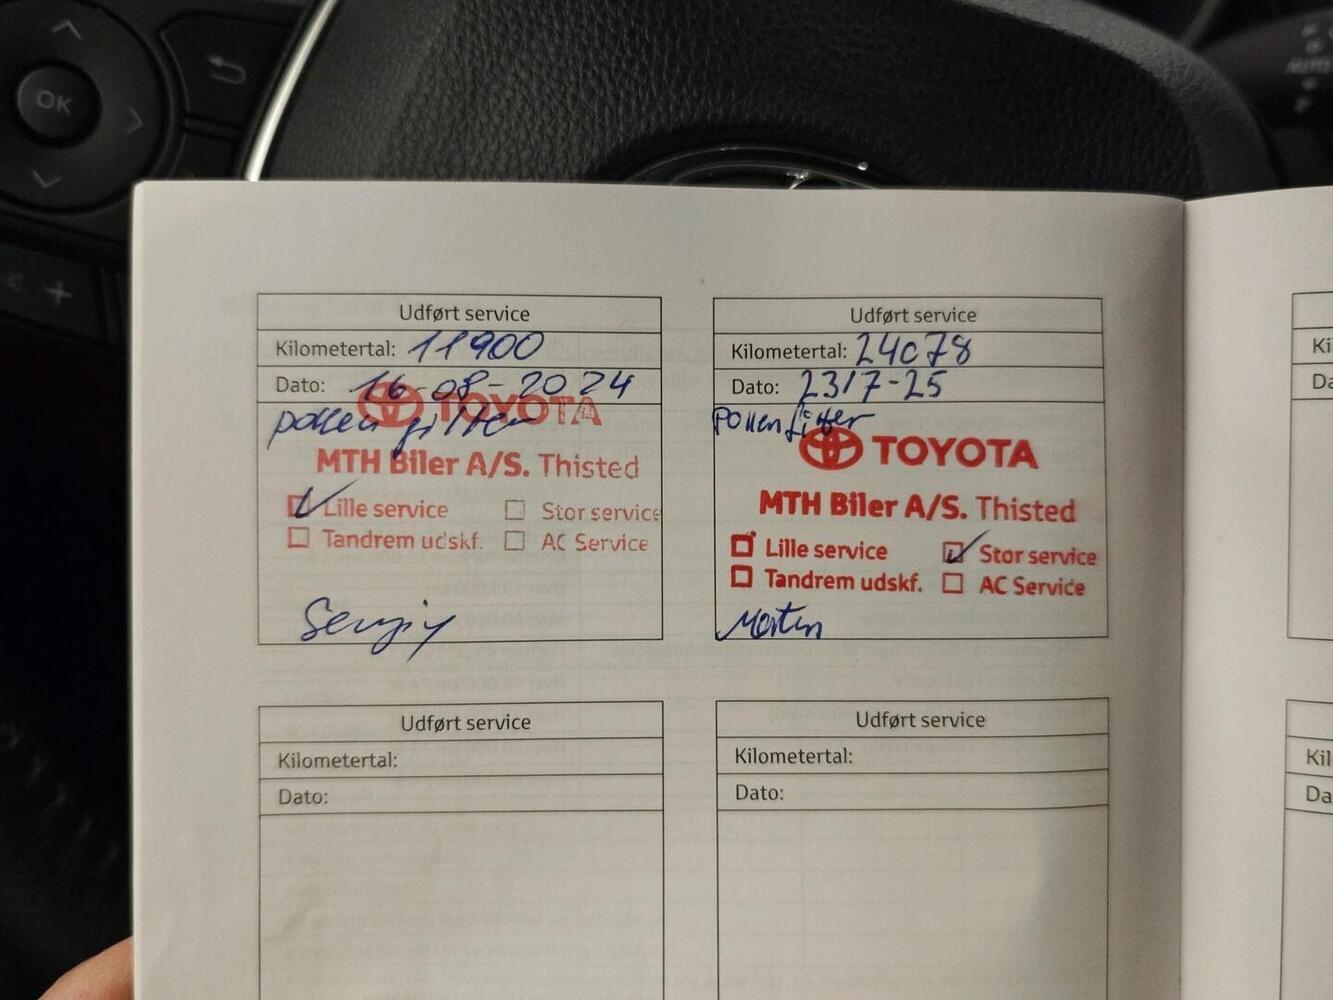 OK
+
AUTO
Udført service
Kilometertal: 11900
Dato: 16-08-2024
pollen filter
TOYOTA
MTH Biler A/S. Thisted
Lille service
Stor service
Tandrem udskf.
AC Service
Sergiy
Udført service
Kilometertal: 24078
Dato: 23/7-25
Pollenfilter
TOYOTA
MTH Biler A/S. Thisted
Lille service
Stor service
Tandrem udskf.
AC Service
Morten
Ki
Da
Udført service
Kilometertal:
Dato:
Udført service
Kilometertal:
Dato:
Kil
Da